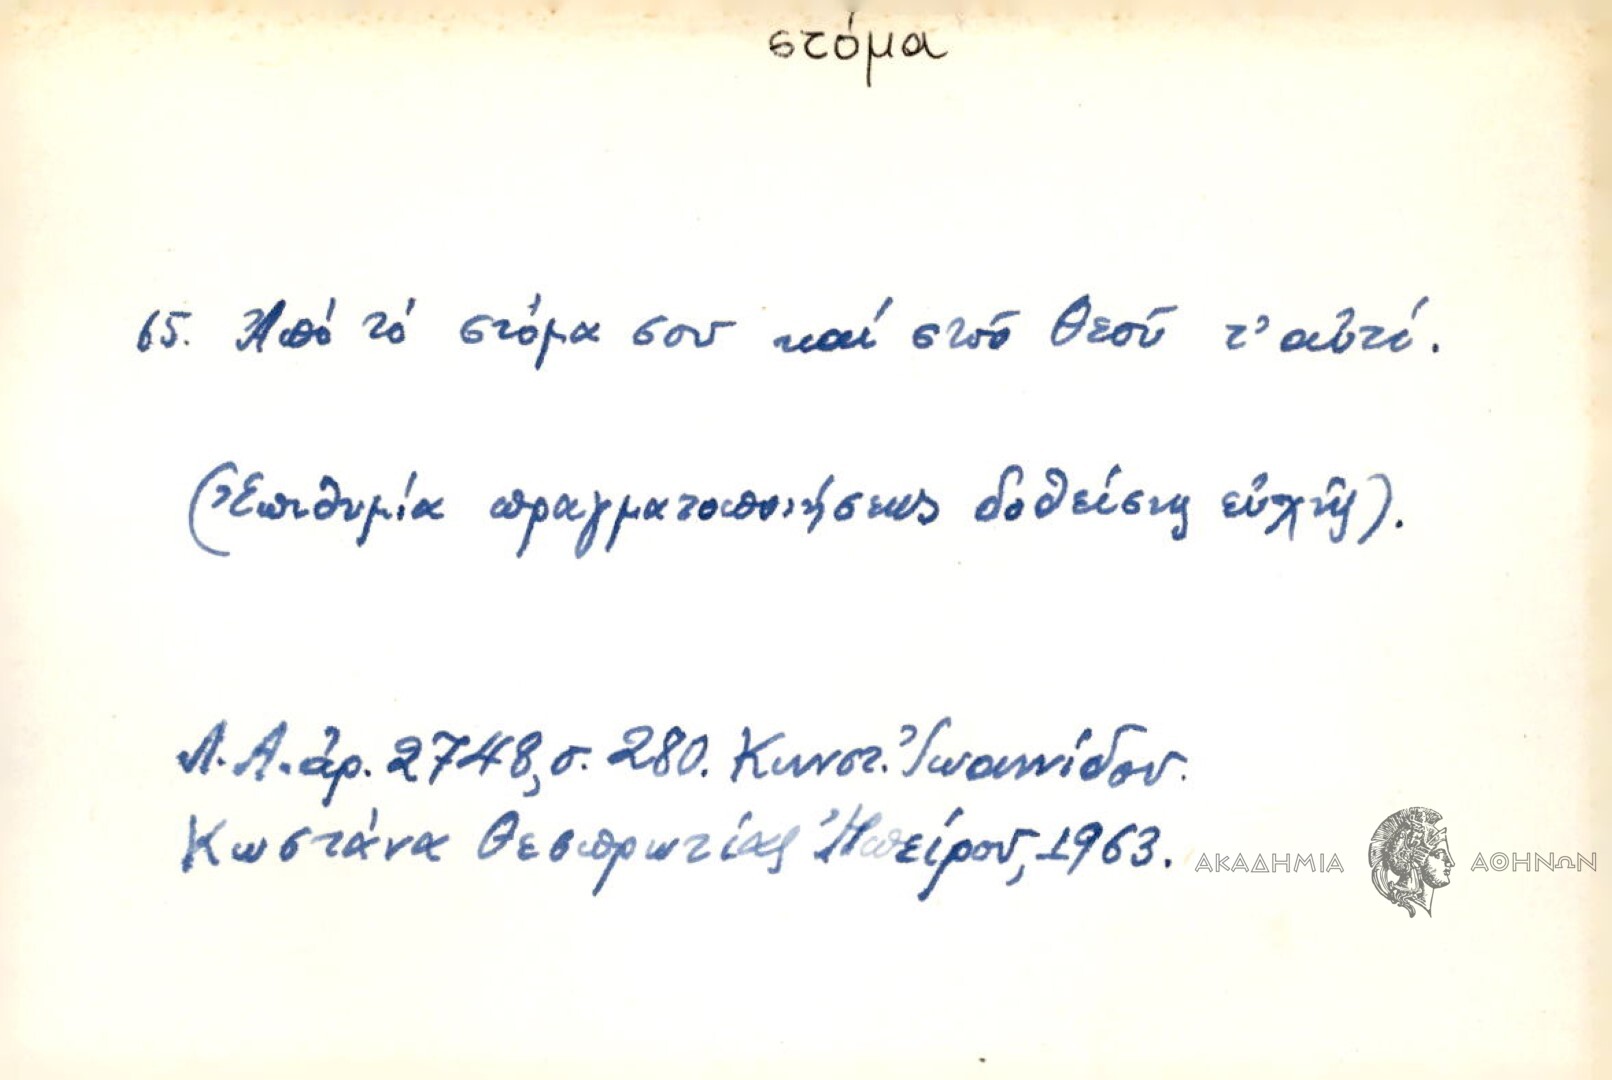 στόμα
65. Ἀπό τό στόμα σου καί στοῦ Θεοῦ τ' αὐτί.
(Ἐπιθυμία πραγματοποιήσεως δοθείσης εὐχῆς).
Λ.Α. ἀρ. 2748, σ. 280. Κωνστ. Ἰωαννίδου.
Κωστάνα Θεσπρωτίας Ἠπείρου, 1963.
ΑΚΑΔΗΜΙΑ ΑΘΗΝΩΝ